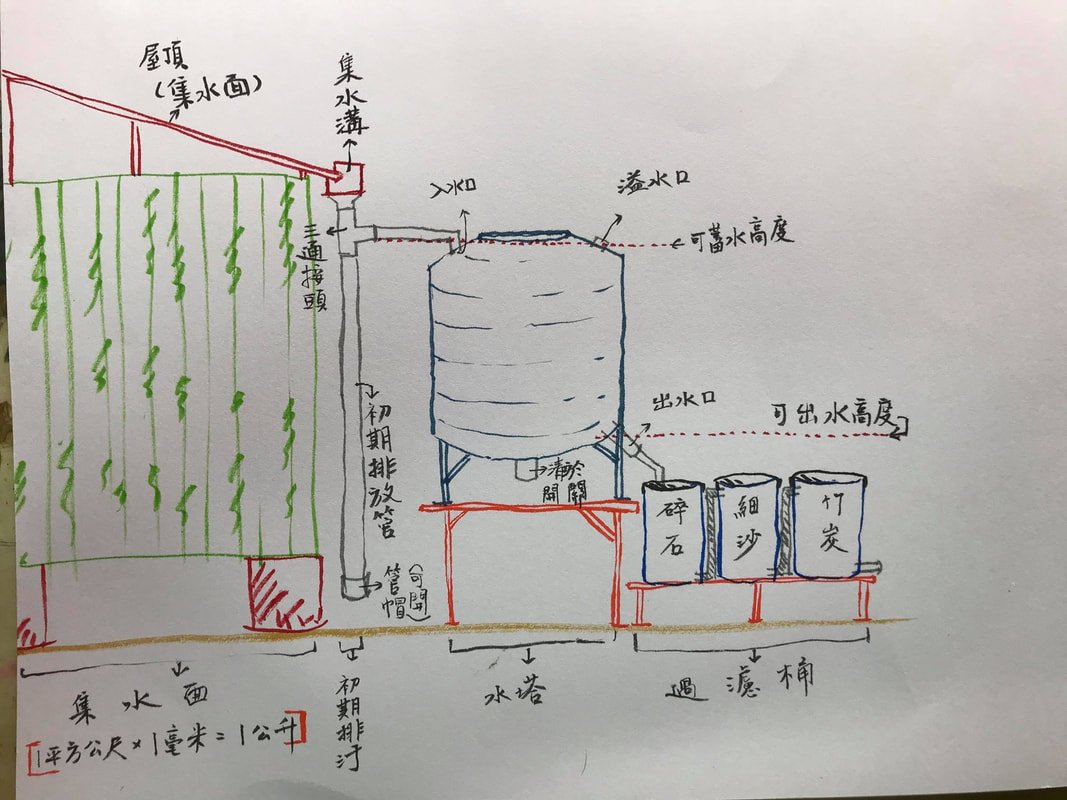 屋頂
(集水面)
集水溝
入水口
溢水口
可蓄水高度
三通接頭
出水口
可出水高度
初期排放管
清淤
開關
碎石
細沙
竹炭
管帽
(可開)
集水面
[1平方公尺×1毫米=1公升]
初期排污
水塔
過濾桶